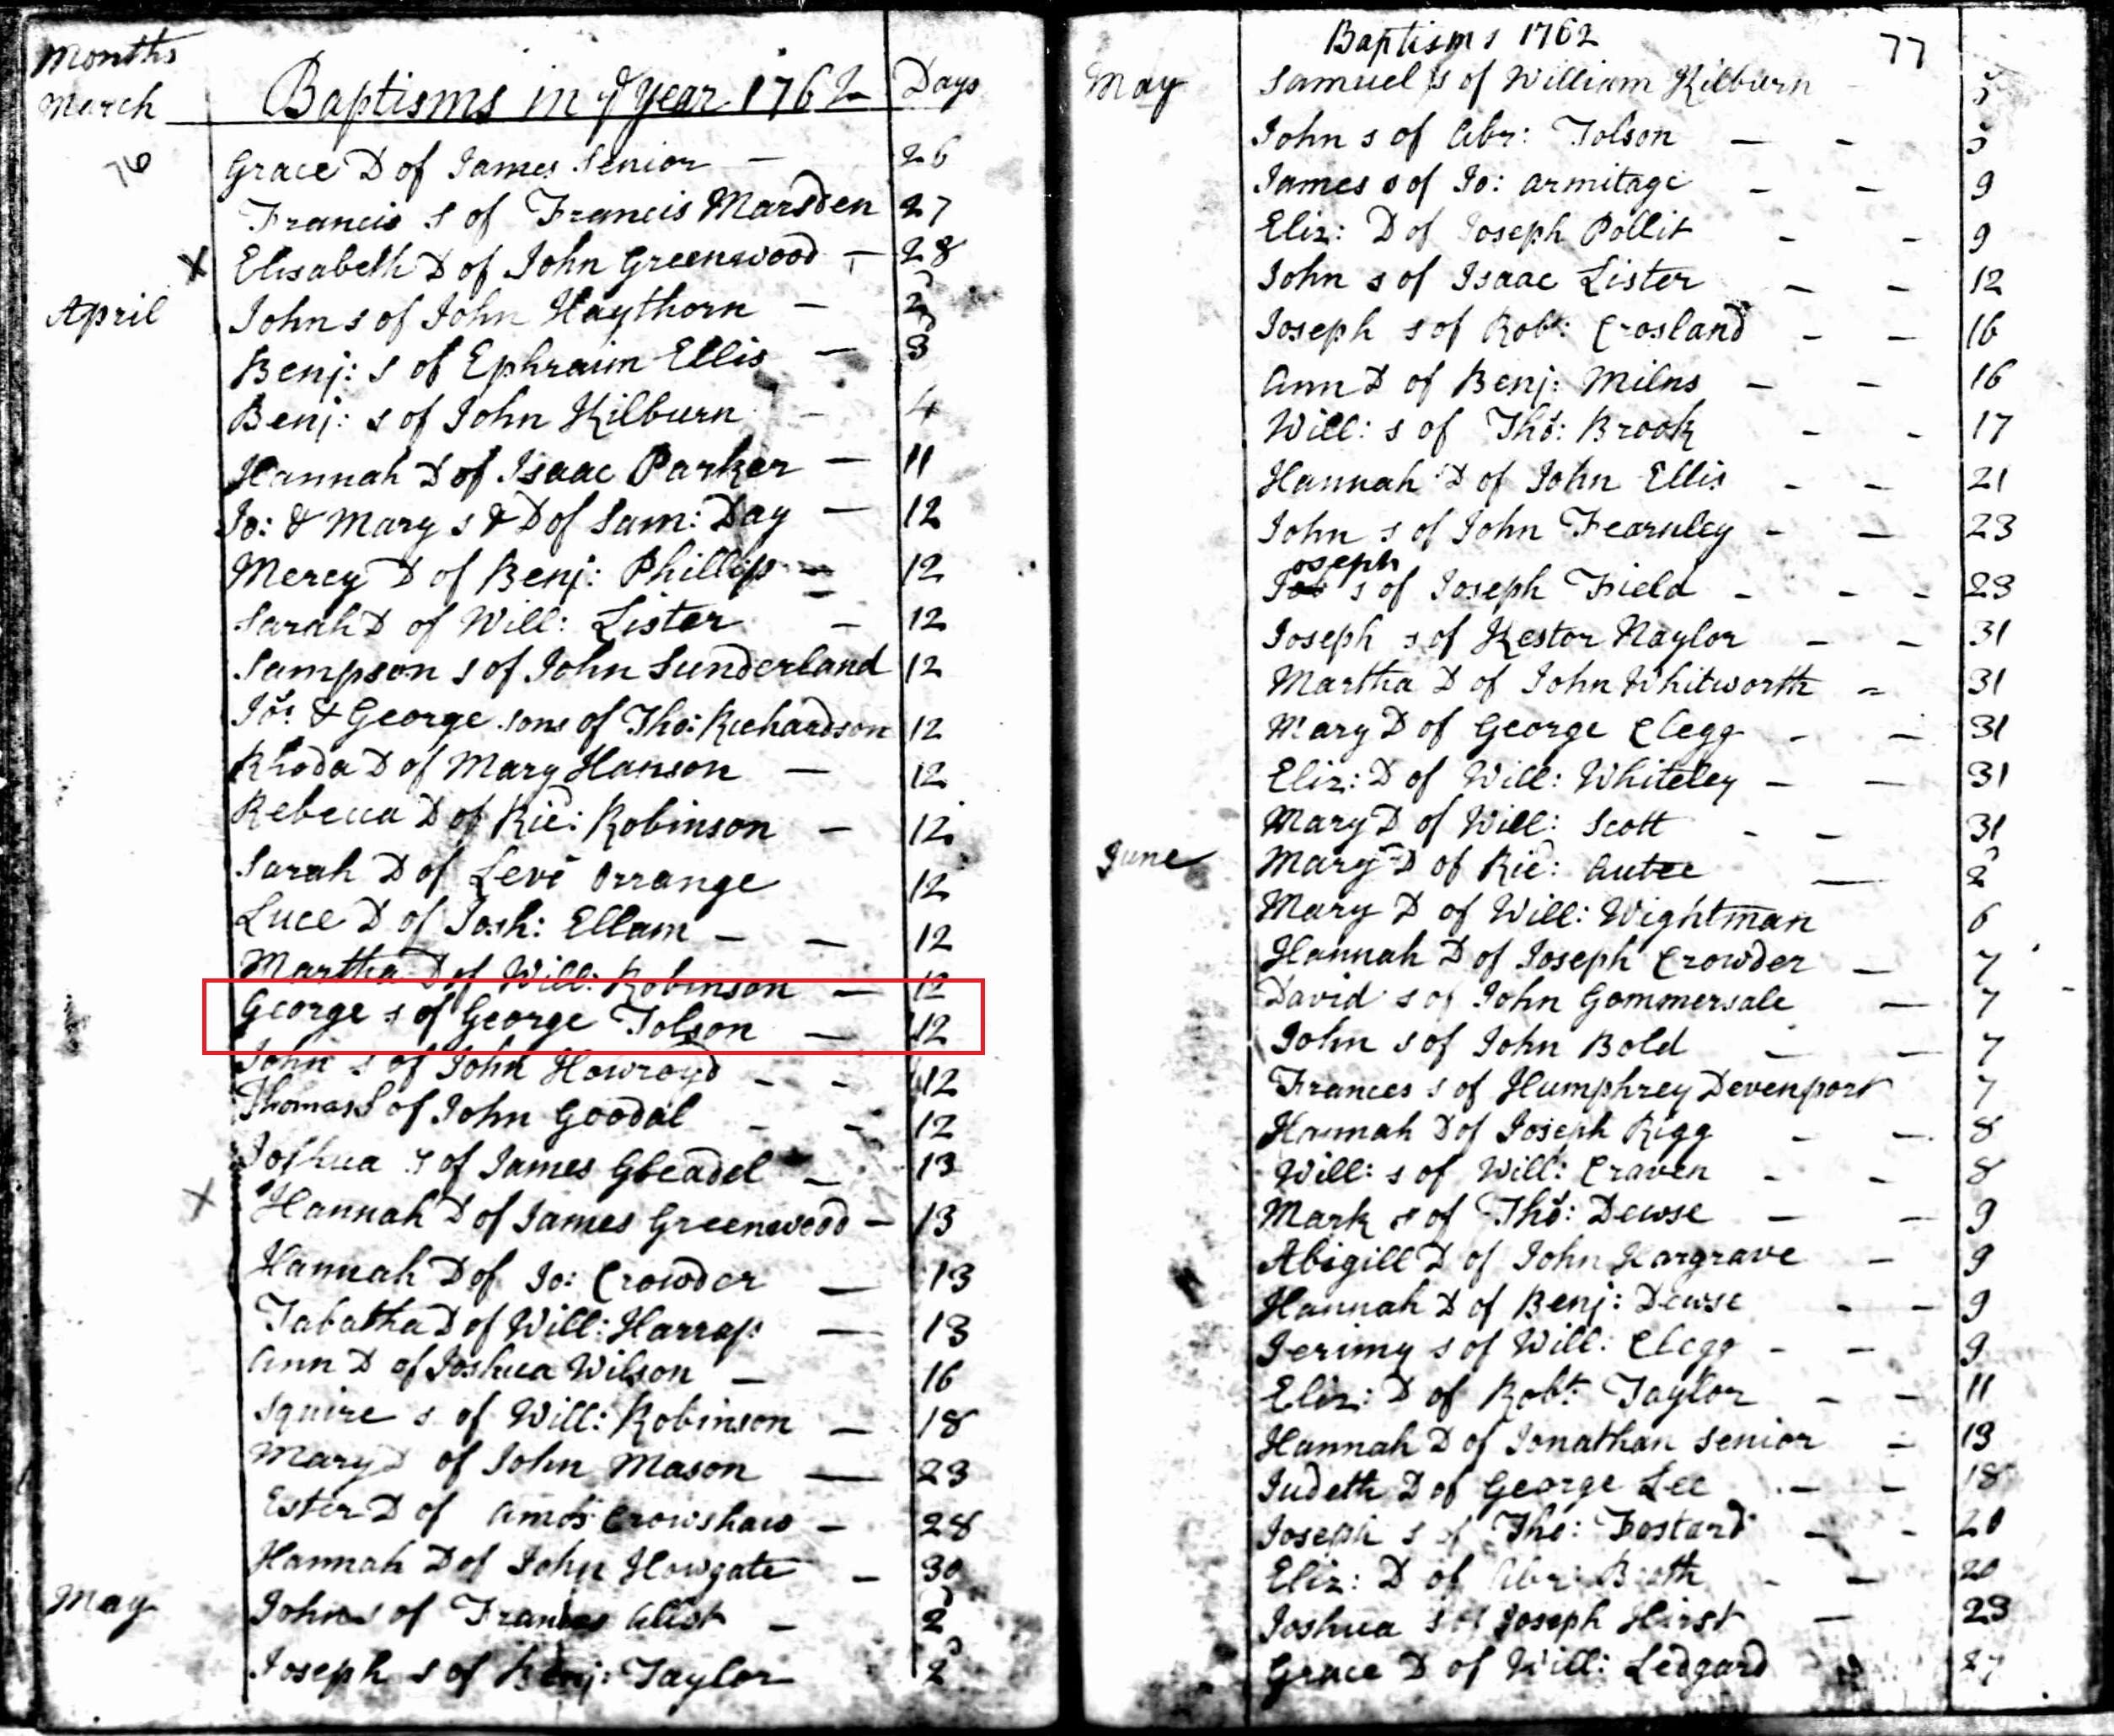 Months
Baptisms in ye year 1762 Days
March
76
Grace D of James Senior — 26
Francis s of Francis Marsden 27
x Elisabeth D of John Greenwood — 28
April John s of John Haythorn — 2d
Benj: s of Ephraim Ellis — 3
Benj: s of John Kilburn — 4
Hannah D of Isaac Parker — 11
Jo: & Mary s & D of Sam: Day — 12
Mercy D of Benj: Phillips — 12
Sarah D of Will: Lister — 12
Sampson s of John Sunderland 12
Jos: & George sons of Tho: Richardson 12
Rhoda D of Mary Hanson — 12
Rebecca D of Ric: Robinson — 12
Sarah D of Levi Orrange 12
Luce D of Josh: Ellam — — 12
Martha D of Will: Robinson — 12
George s of George Tolson — 12
John s of John Howroyd - - 12
Thomas S of John Goodal - - 12
Joshua s of James Gleadel — 13
x Hannah D of James Greenwood — 13
Hannah D of Jo: Crowder — 13
Tabatha D of Will: Harrap — 13
Ann D of Joshua Wilson — 16
Squire s of Will: Robinson — 18
Mary D of John Mason — 23
Ester D of Amos Crowshaw — 28
Hannah D of John Howgate — 30
May John s of 2d
Joseph s of Benj: Taylor 2d
Baptisms 1762 77
May Samuel s of William Kilburn 5
John s of Abr: Tolson — - 5
James s of Jo: Armitage - - 9
Eliz: D of Joseph Pollit - - 9
John s of Isaac Lister - - 12
Joseph s of Robt: Crosland - - 16
Ann D of Benj: Milns - - 16
Will: s of Thos: Brook - - 17
Hannah D of John Ellis - - 21
John s of John Fearnley - - 23
oseph
Jos s of Joseph Field - - - 23
Joseph s of Kestor Naylor - - 31
Martha D of John Whitworth - 31
Mary D of George Clegg - - 31
Eliz: D of Will: Whiteley - - 31
Mary D of Will: Scott - - 31
June Mary D of Ric: Autee — 2d
Mary D of Will: Wightman 6
Hannah D of Joseph Crowder — 7
David s of John Gommersale — 7
John s of John Bold - - 7
Frances s of Humphrey Devenport 7
Hannah D of Joseph Rigg - - 8
Will: s of Will: Craven - - 8
Mark s of Thos: Dewse - - 9
Abigill D of John Hargrave - 9
Hannah D of Benj: Dewse - - 9
Jerimy s of Will: Clegg - - 9
Eliz: D of Robt: Taylor - - 11
Hannah D of Jonathan Senior - 13
Judeth D of George Lee - - 18
Joseph s of Tho: Fostard - - 20
Eliz: D of Abr: Booth - - 20
Joshua s of Joseph Hirst — 23
Grace D of Will: Ledgard 27